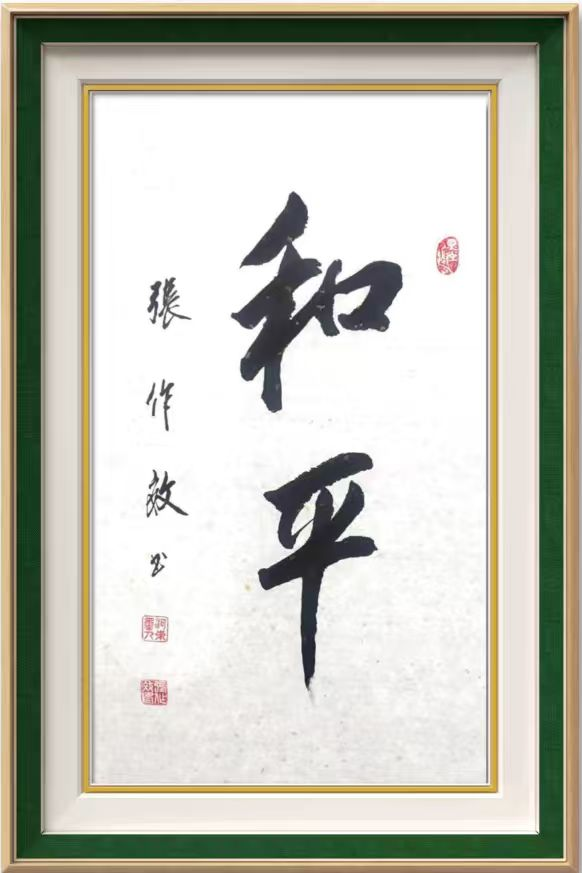 和平
張作效书